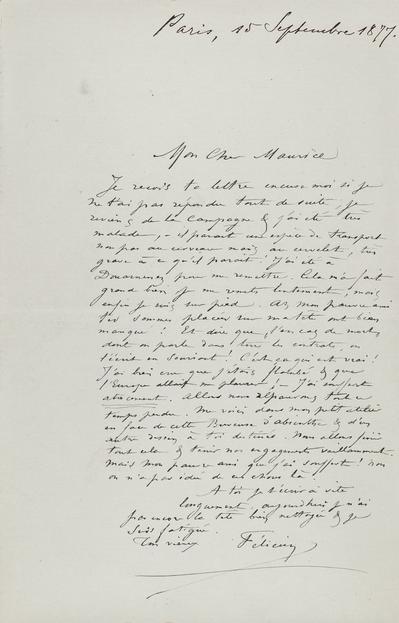 Paris, 15 Septembre 1877.
Mon Cher Maurice
Je reçois ta lettre excuse moi si je
ne t'ai pas répondu tout de suite, je
reviens de la Campagne & j'ai été très
malade, – il parait un espèce de transport
non pas au cerveau mais au cervelet, très
grave à ce qu'il parait! J'ai été à
Douarnenez pour me remettre. Cela m'a fait
grand bien je me remets lentement, mais
enfin je suis sur pied. Ah mon pauvre ami
les sommes placées sur ma tête ont beau
manqué! Et dire que, l'en cas de mort,
dont on parle dans tous les contrats, on
l'écrit en souriant! C'est ça qui est vrai!
J'ai bien cru que j'étais flambé & que
l'Europe allait me pleurer! – J'ai souffert
atrocement. Allons nous réparerons tout ce
temps perdu. Me voici dans mon petit atelier
en face de cette Buveuse d'absinthe & d'un
autre dessin à toi destinés. Nous allons finir
tout cela & tenir nos engagements vaillamment.
Mais mon pauvre ami que j'ai souffert! non
on n'a pas idée de ces choses là!
A toi je t'écrirai vite
longuement, aujourd'hui je n'ai
pas encore la tête bien nettoyée & je
suis fatigué.
Ton vieux Félicien